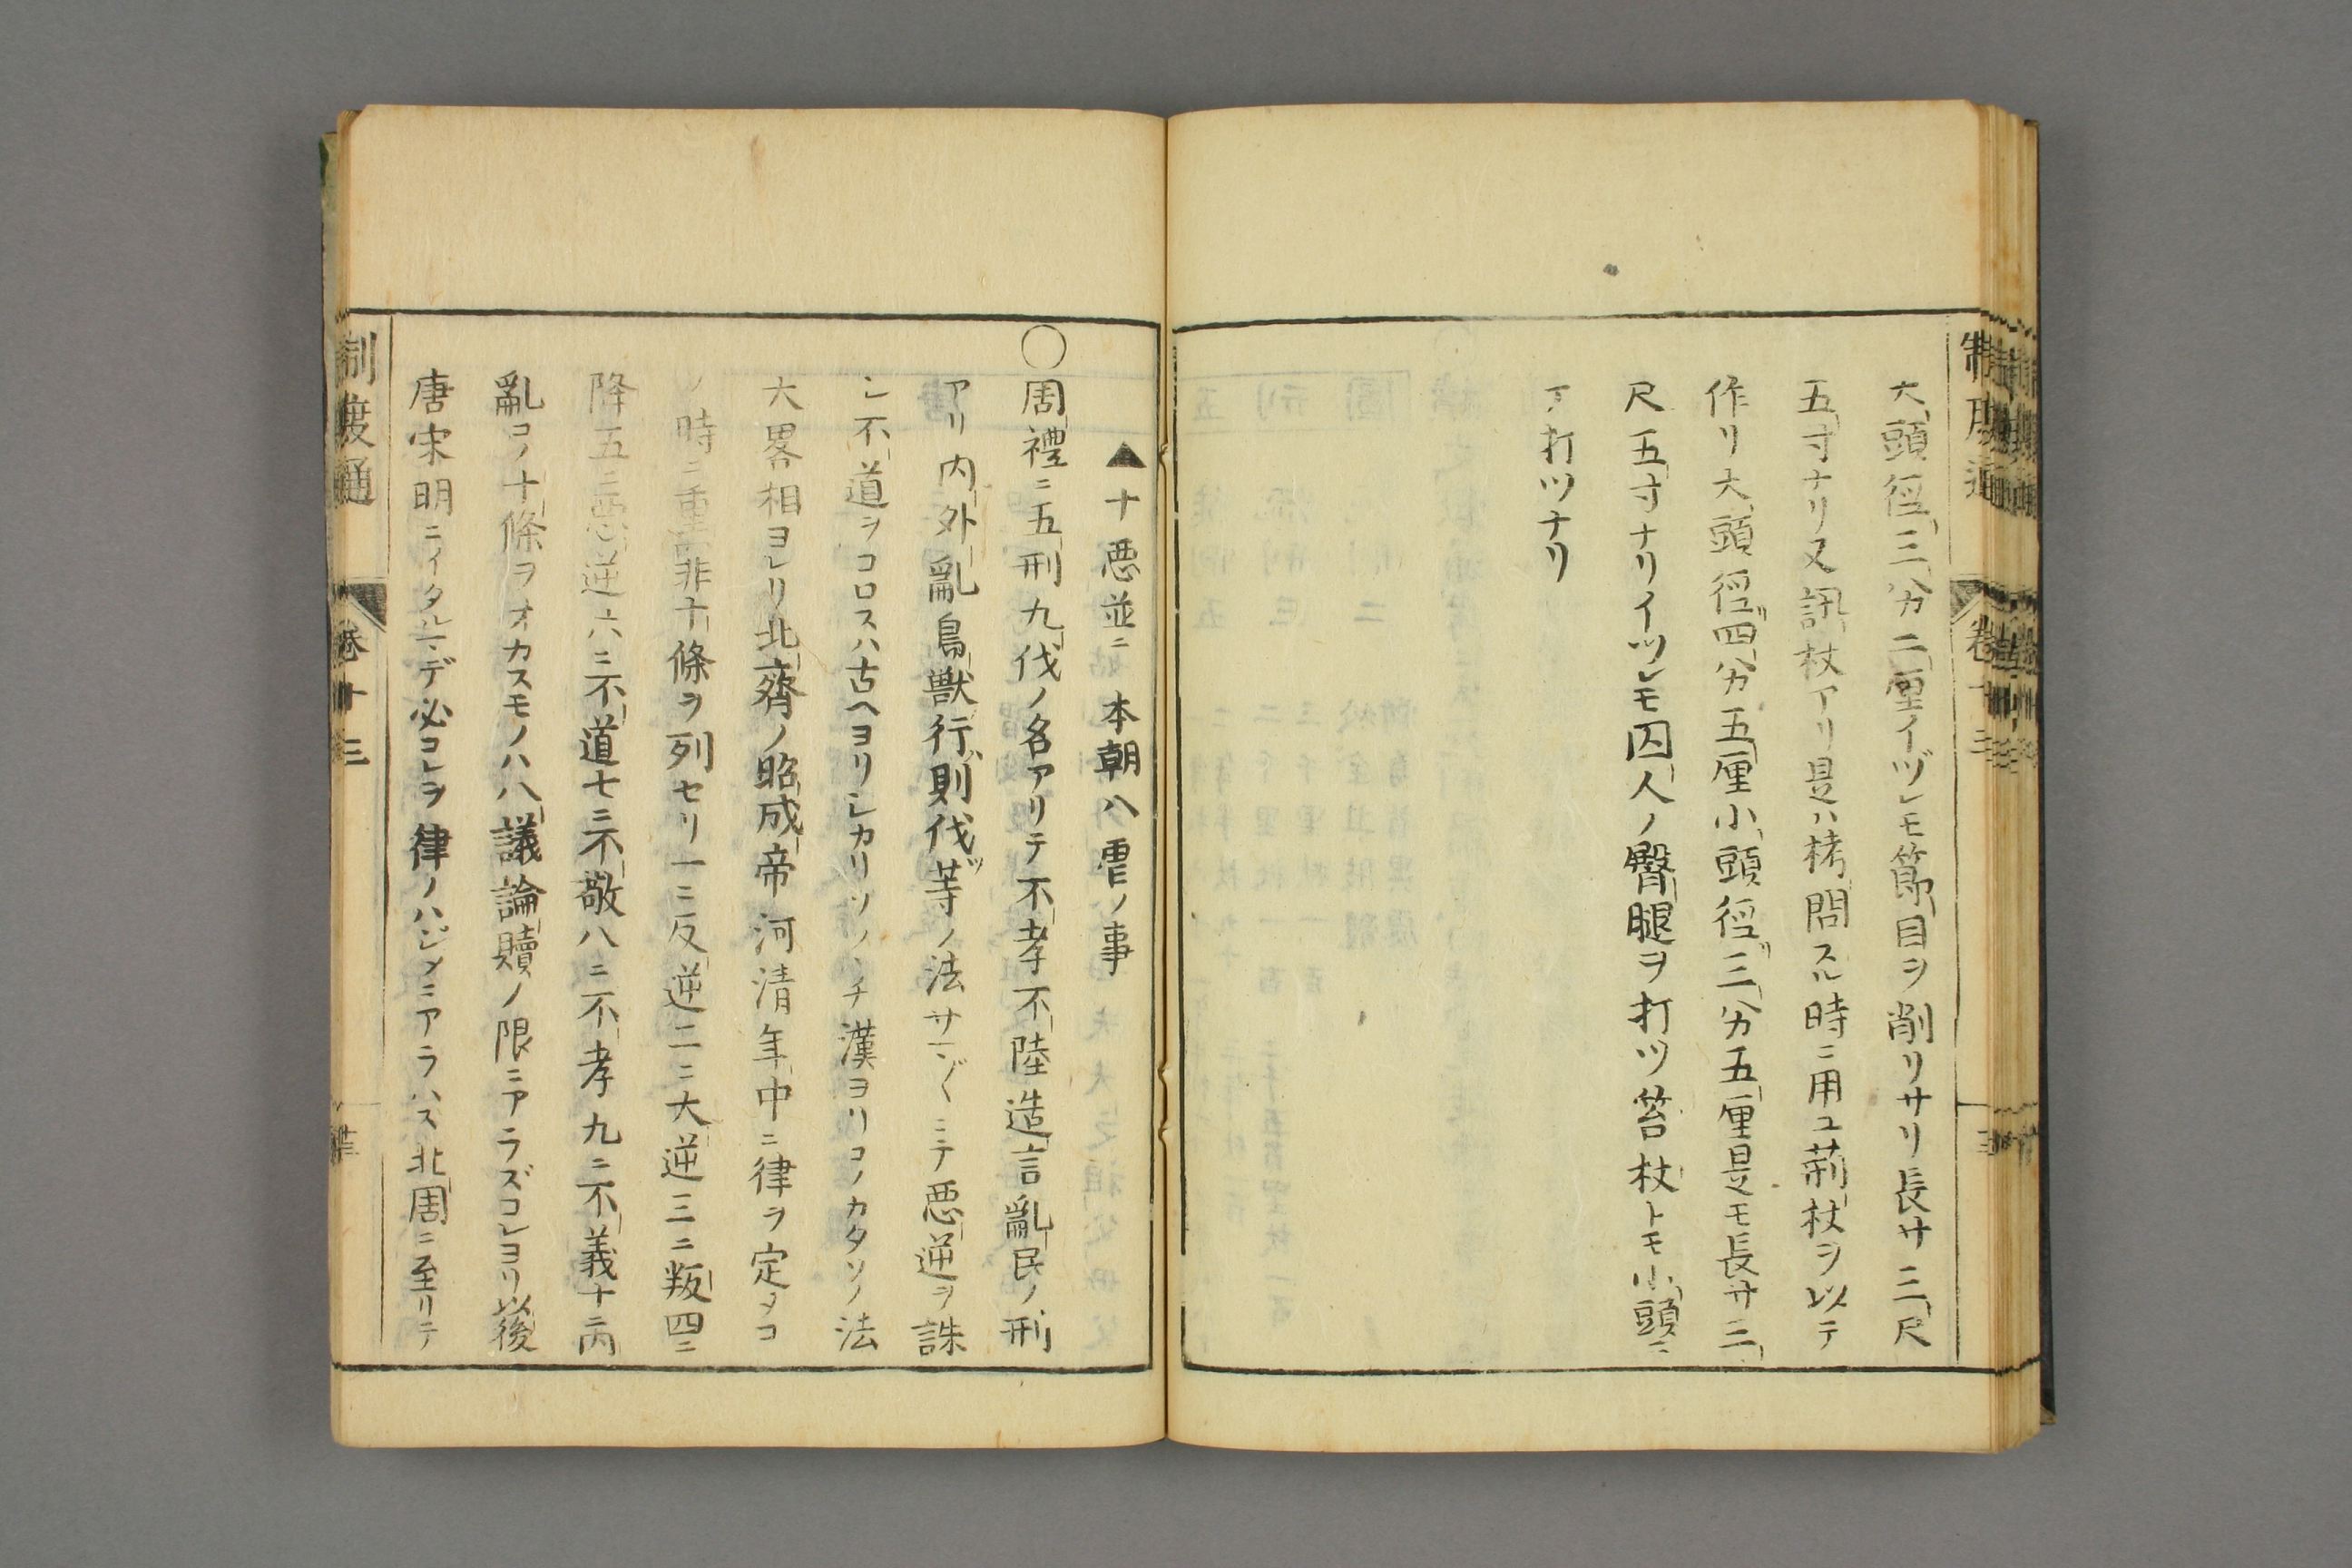 大頭徑三分二厘イヅレモ節目ヲ削リサリ長サ三尺
五寸ナリ又訊杖アリ是ハ栲問スル時ニ用ユ荊杖ヲ以テ
作リ大頭徑四分五厘小頭徑三分五厘是モ長サ三
尺五寸ナリイツレモ囚人ノ臀腿ヲ打ツ笞杖トモ小頭ニ
テ打ツナリ
▲十惡並ニ 本朝八虐ノ事
○周禮ニ五刑九伐ノ名アリテ不孝不陸造言亂民ノ刑
アリ内外亂鳥獸行則伐等ノ法サマ〲ニテ惡逆ヲ誅
シ不道ヲコロスハ古ヘヨリシカリソノヽチ漢ヨリコノカタソノ法
大畧相ヨレリ北齊ノ昭成帝河清年中ニ律ヲ定メコ
ノ時ニ重罪十條ヲ列セリ一ニ反逆二ニ大逆三ニ叛四ニ
降五ニ惡逆六ニ不道七ニ不敬八ニ不孝九ニ不義十ニ内
亂コノ十條ヲオカスモノハ八議論贖ノ限ニアラズコレヨリ以後
唐宋明ニイタルマデ必コレヲ律ノハジメニアラハス北周ニ至リテ
制度通 卷十三